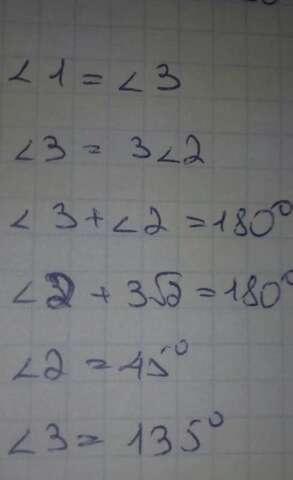 ∠1 = ∠3
∠3 = 3∠2
∠3 + ∠2 = 180°
∠2 + 3√2 = 180°
∠2 = 45°
∠3 = 135°